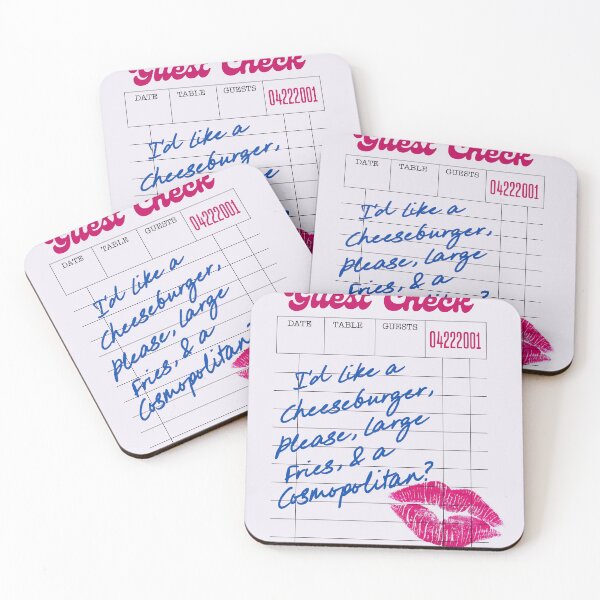 Guest Check
DATE TABLE GUESTS 04222001
I'd like a
Cheeseburger,
Large
Guest Check
DATE TABLE GUESTS 04222001
I'd like a
Cheeseburger,
Please, Large
Fries, & a
?
Guest Check
DATE TABLE GUESTS 04222001
I'd like a
Cheeseburger,
Please, Large
Fries, & a
Cosmopolitan?
Guest Check
DATE TABLE GUESTS 04222001
I'd like a
Cheeseburger,
Please, Large
Fries, & a
Cosmopolitan?